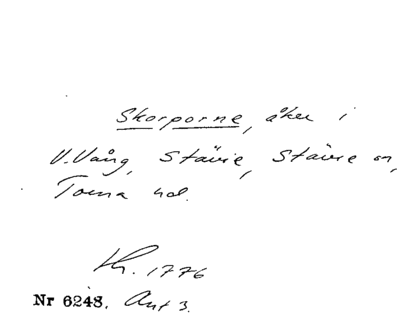 Skorporne, åker i
V. Vång, Stävie, Stävie sn,
Torna hd.
Kh. 1776
Nr 6248. Akt 3.